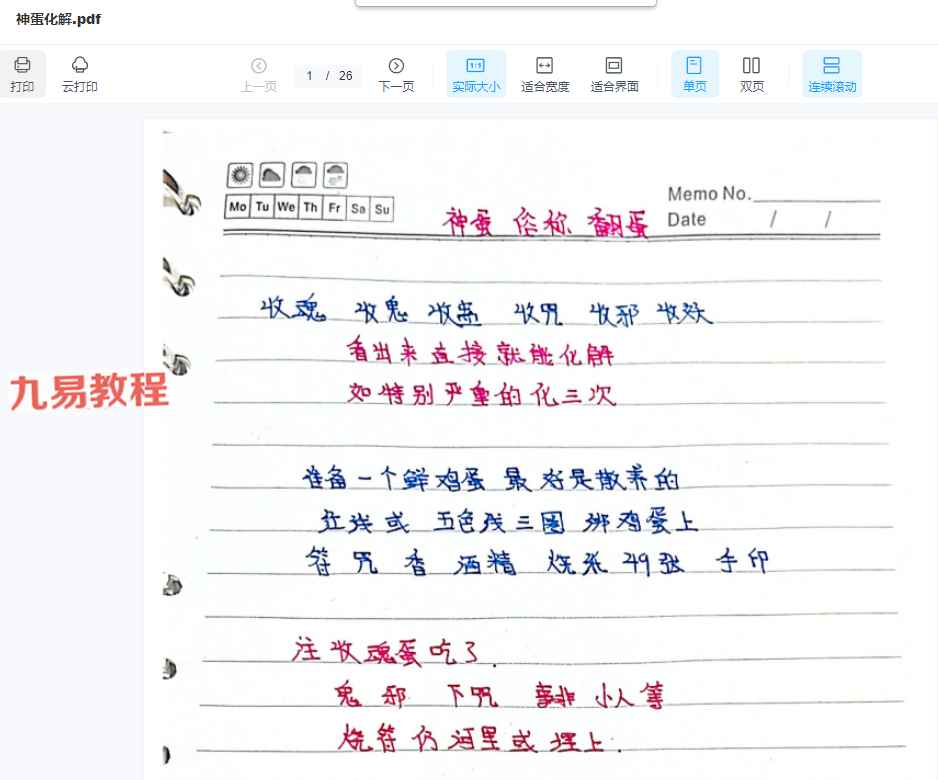 神蛋化解.pdf
打印 云打印 上一页 1 / 26 下一页 实际大小 适合宽度 适合界面 单页 双页 连续滚动
Mo Tu We Th Fr Sa Su
Memo No.
Date / /
神蛋 俗称 翻蛋
收魂 收鬼 收蛊 收咒 收邪 收妖
看出来直接就能化解
如特别严重的化三次
九易教程
准备一个鲜鸡蛋 最好是散养的
红线或 五色线三圈 绑鸡蛋上
符 咒 香 酒精 烧纸 49张 手印
注 收魂蛋吃了.
鬼 邪 下咒 小人等
烧符 仍河里或 埋上.